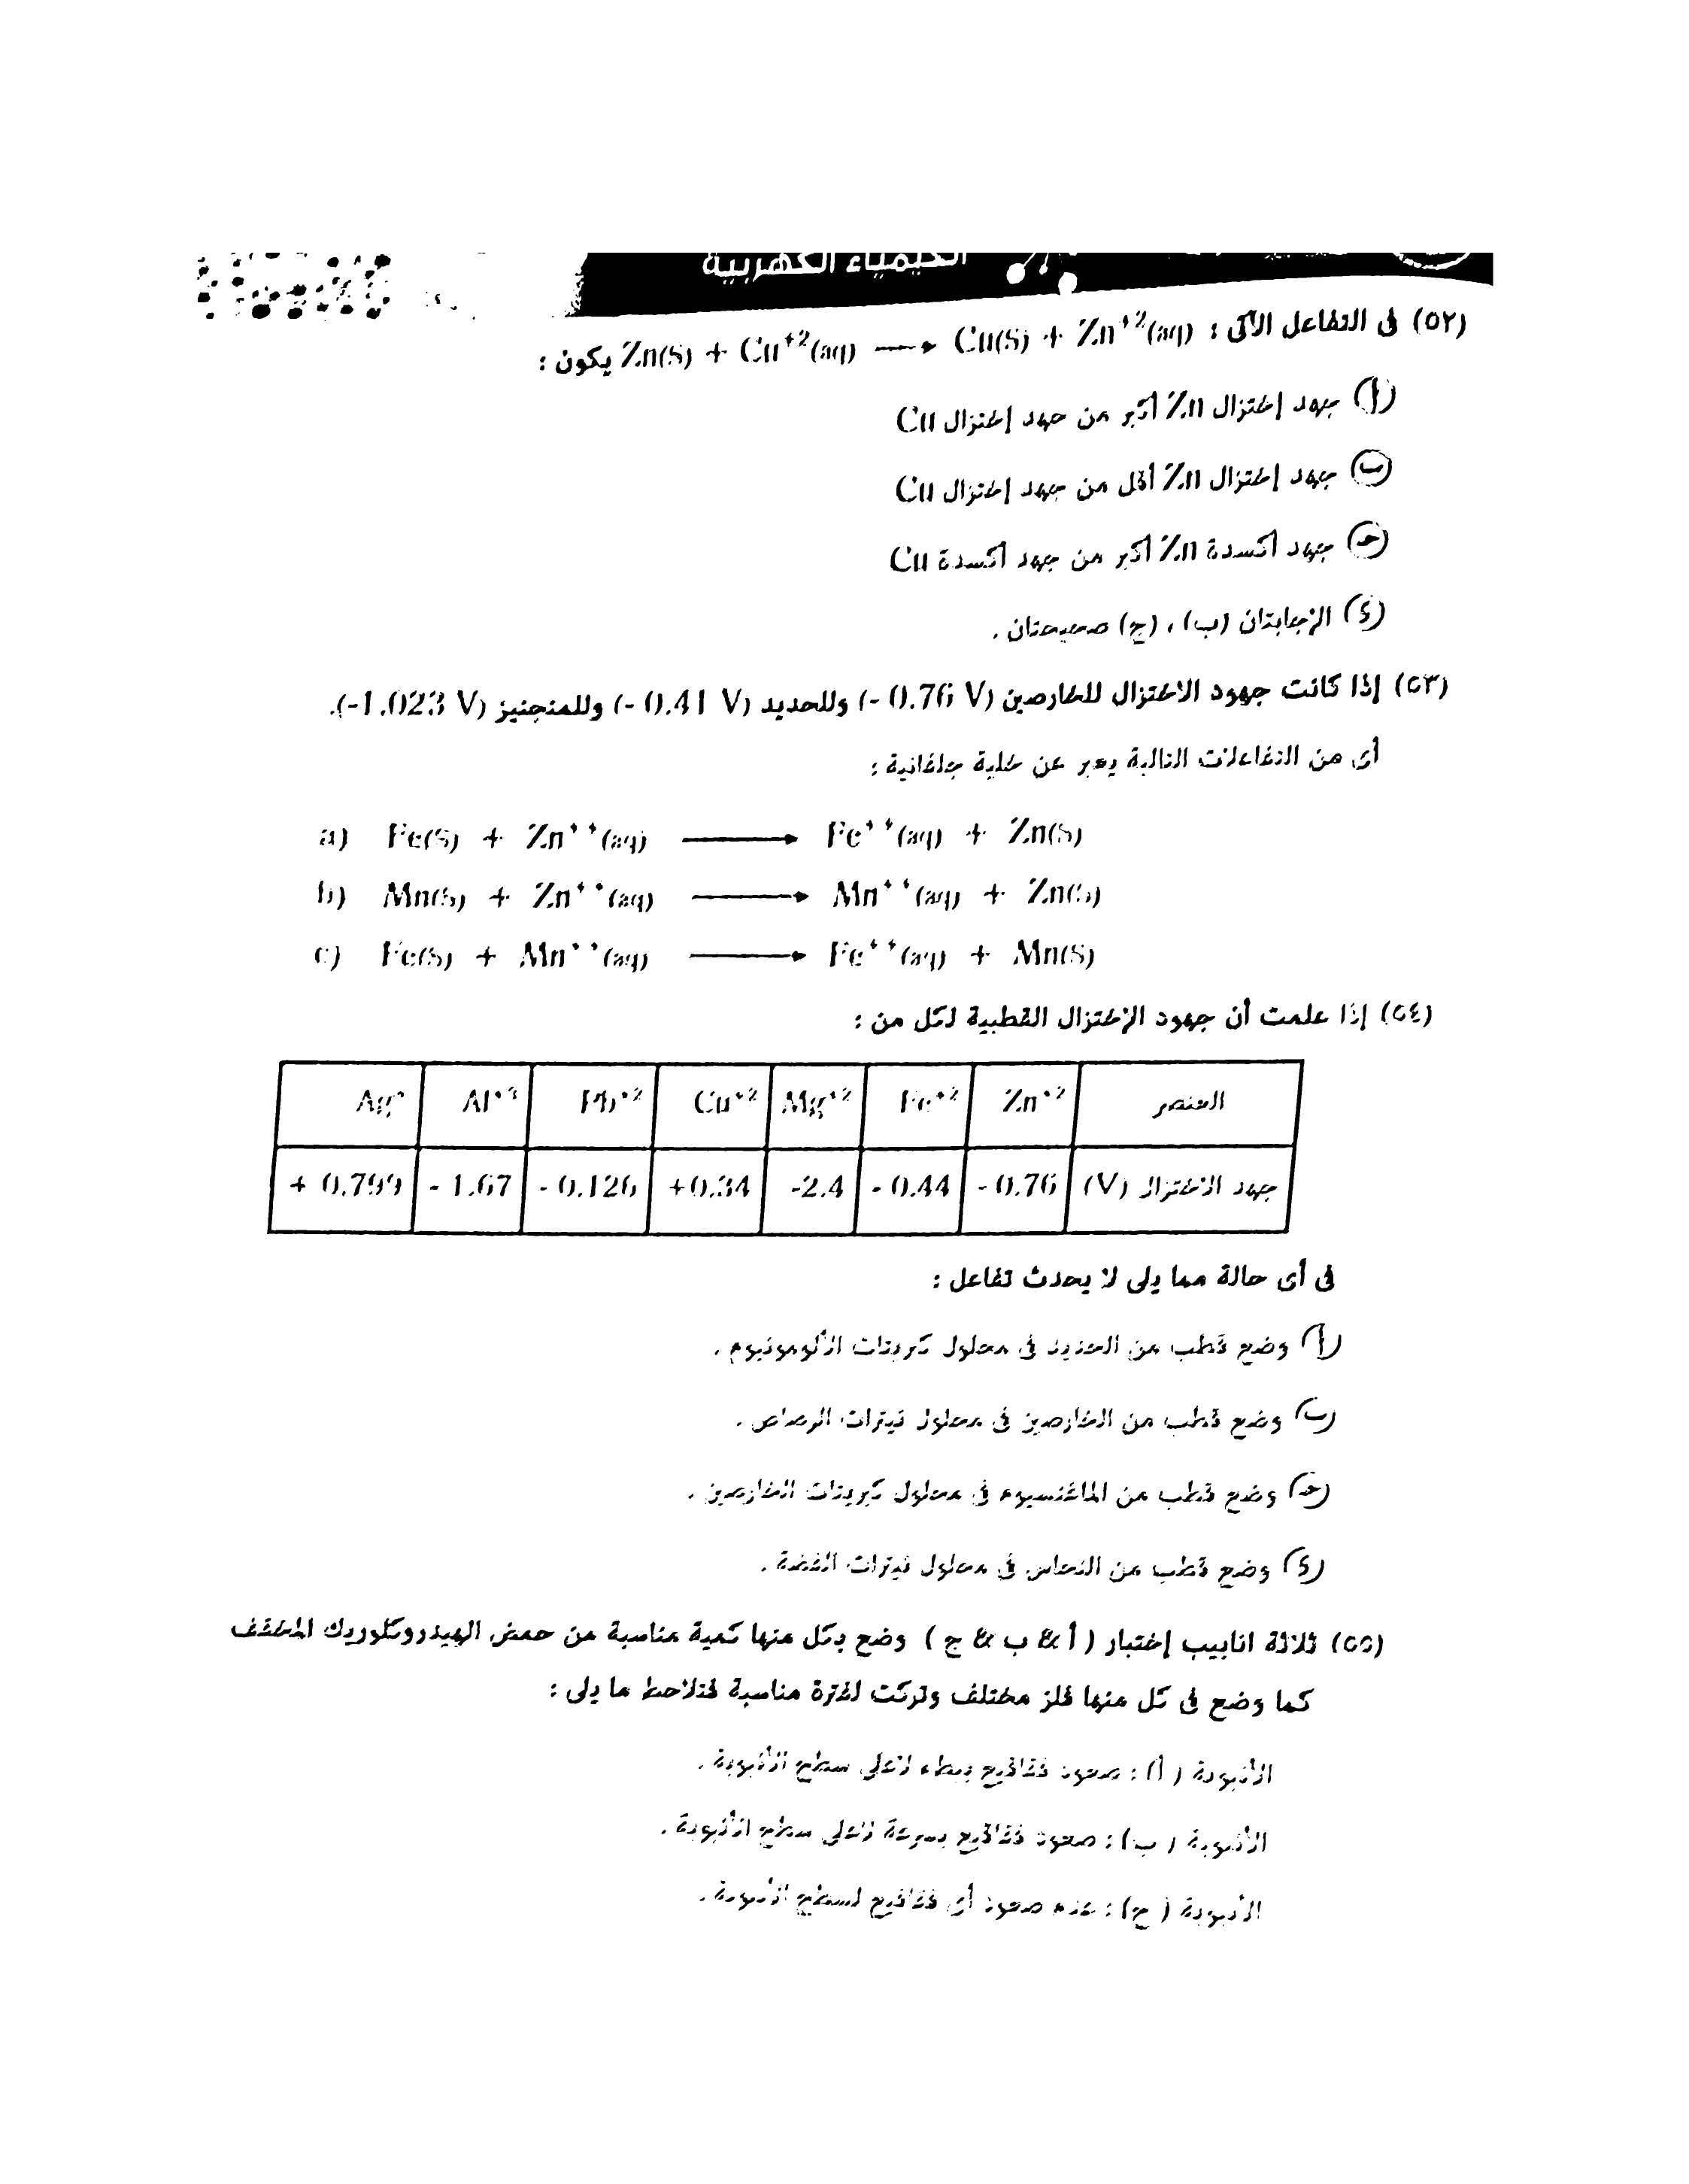 الكيمياء الكهربية
(٥٢) فى التفاعل الآتى : Zn(S) + Cu⁺²(aq) ⟶ Cu(S) + Zn⁺²(aq) يكون :
(أ) جهد إختزال Zn أكبر من جهد إختزال Cu
(ب) جهد إختزال Zn أقل من جهد إختزال Cu
(جـ) جهد أكسدة Zn أكبر من جهد أكسدة Cu
(د) الإجابتان (ب) ، (ج) صحيحتان .
(٥٣) إذا كانت جهود الاختزال للخارصين (- 0.76 V) وللحديد (- 0.41 V) وللمنجنيز (-1.023 V).
أى من التفاعلات التالية يعبر عن خلية جلفانية :
a) Fe(S) + Zn⁺⁺(aq) ⟶ Fe⁺⁺(aq) + Zn(S)
b) Mn(S) + Zn⁺⁺(aq) ⟶ Mn⁺⁺(aq) + Zn(S)
c) Fe(S) + Mn⁺⁺(aq) ⟶ Fe⁺⁺(aq) + Mn(S)
(٥٤) إذا علمت أن جهود الإختزال القطبية لكل من :
العنصر Zn⁺² Fe⁺² Mg⁺² Cu⁺² Pb⁺² Al⁺³ Ag⁺
جهد الاختزال (V) - 0.76 - 0.44 -2.4 +0.34 - 0.126 - 1.67 + 0.799
فى أى حالة مما يلى لا يحدث تفاعل :
(أ) وضع قطب من الحديد فى محلول كبريتات الألومونيوم .
(ب) وضع قطب من الخارصين فى محلول نيترات الرصاص .
(جـ) وضع قطب من الماغنسيوم فى محلول كبريتات الخارصين .
(د) وضع قطب من النحاس فى محلول نيترات الفضة .
(٥٥) ثلاثة انابيب إختبار ( أ & ب & ج ) وضع بكل منها كمية مناسبة من حمض الهيدروكلوريك المخفف
كما وضع فى كل منها فلز مختلف وتركت لفترة مناسبة فتلاحظ ما يلى :
الأنبوبة ( أ) : صعود فقاقيع ببطء لأعلى سطح الأنبوبة .
الأنبوبة ( ب) : صعود فقاقيع بسرعة لأعلى سطح الأنبوبة .
الأنبوبة ( ج) : عدم صعود أى فقاقيع لسطح الأنبوبة .